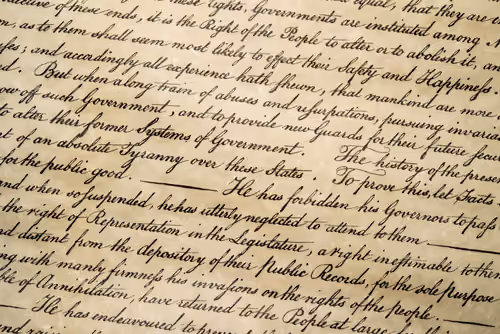 these rights, Governments are instituted among
ctive of these ends, it is the Right of the People to alter or to abolish it, an
n, as to them shall seem most likely to effect their Safety and Happiness.
fes; and accordingly all experience hath shewn, that mankind are more
d. But when a long train of abuses and usurpations, pursuing invaria
ow off such Government, and to provide new Guards for their future secu
to alter their former Systems of Government. The history of the presen
t of an absolute Tyranny over these States. To prove this, let Facts
for the public good. He has forbidden his Governors to pass
and when so suspended, he has utterly neglected to attend to them
the right of Representation in the Legislature, a right inestimable to the
nd distant from the depository of their Public Records, for the sole purpose
ng with manly firmness his invasions on the rights of the people.
ble of Annihilation, have returned to the People at large
He has endeavoured to